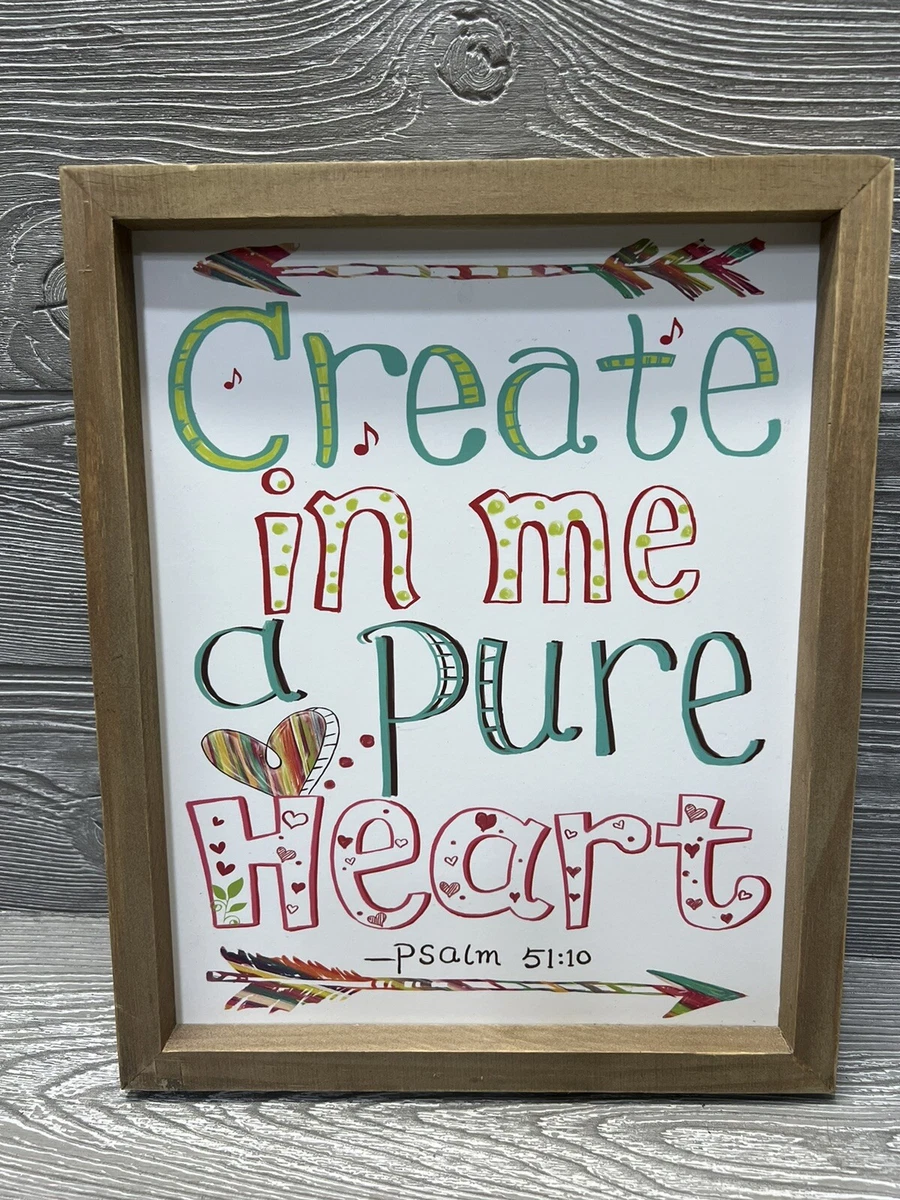 Create
in me
a pure
Heart
—Psalm 51:10